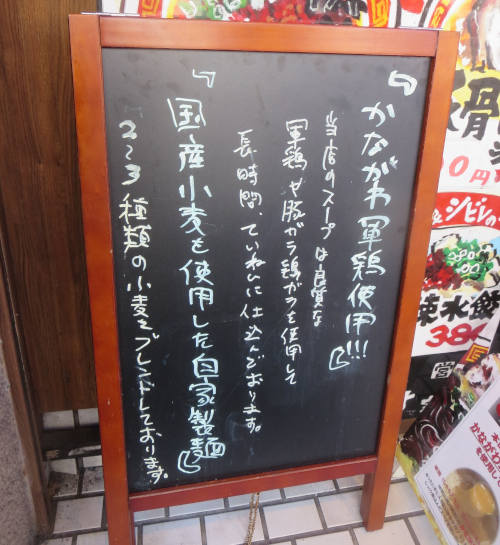 『かながわ軍鶏使用!!!』
当店のスープは良質な
軍鶏や豚ガラ鶏ガラを使用して
長時間、ていねいに仕込んでおります。
『国産小麦を使用した自家製麺』
2〜3種類の小麦をブレンドしております。
骨
0円
シビレの
辣水餃
384
かながわ
を使用して